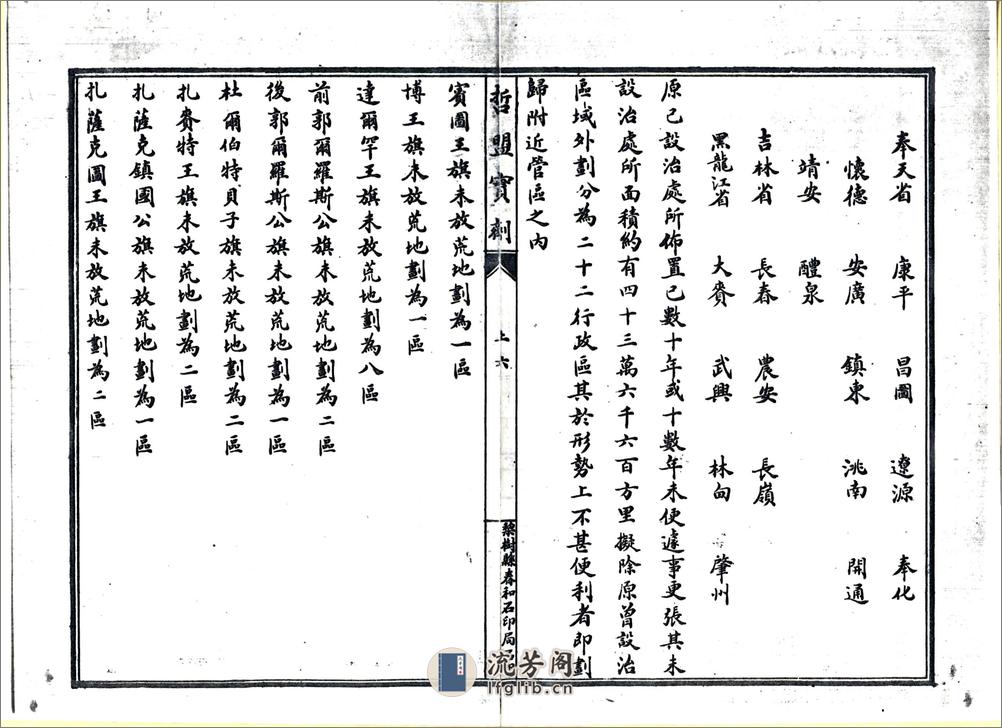 奉天省 康平 昌圖 遼源 奉化
懷德 安廣 鎮東 洮南 開通
靖安 醴泉
吉林省 長春 農安 長嶺
黑龍江省 大賚 武興 林甸 肇州
原已設治處所佈置已數十年或十數年未便遽事更張其未
設治處所面積約有四十三萬六千六百方里擬除原曾設治
區域外劃分為二十二行政區其於形勢上不甚便利者即劃
歸附近管區之內
哲盟實劑
上 六
梨樹縣春和石印局
賓圖王旗未放荒地劃為一區
博王旗未放荒地劃為一區
達爾罕王旗未放荒地劃為八區
前郭爾羅斯公旗未放荒地劃為二區
後郭爾羅斯公旗未放荒地劃為一區
杜爾伯特貝子旗未放荒地劃為二區
扎賚特王旗未放荒地劃為二區
扎薩克鎮國公旗未放荒地劃為一區
扎薩克圖王旗未放荒地劃為二區
流芳阁
lfglib.cn